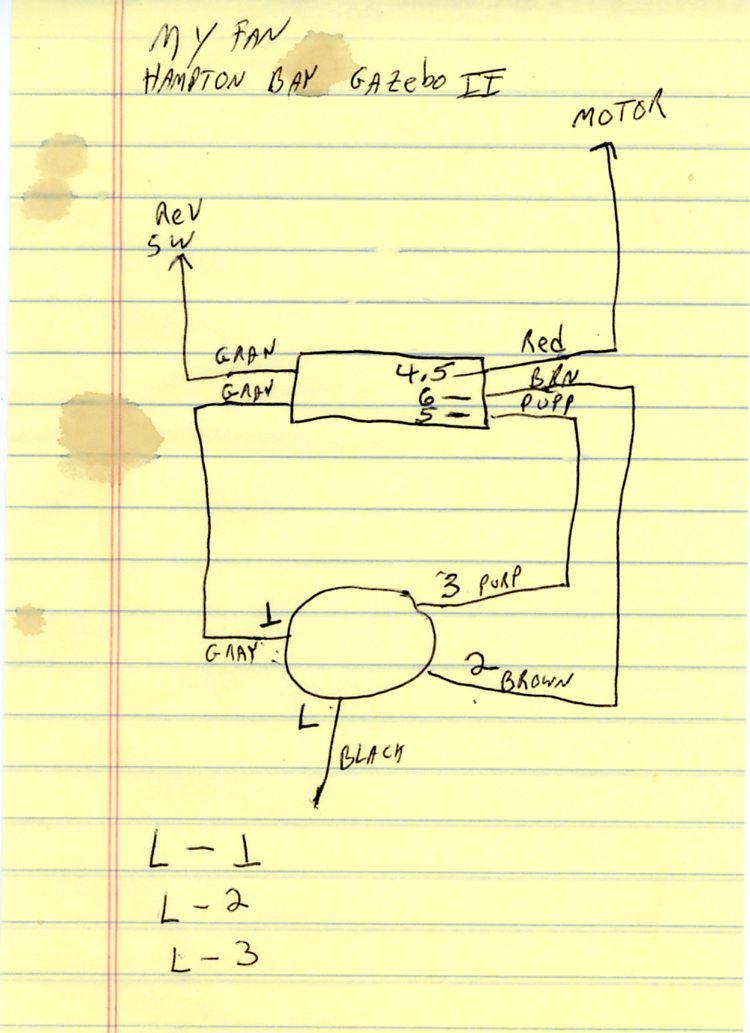 MY FAN
HAMPTON BAY GAZebo II
MOTOR
ReV
SW
GRAY
Red
4.5
GRAY
BRN
6
PURP
5
3 PURP
1
GRAY
2 BROWN
L
BLACK
L - 1
L - 2
L - 3